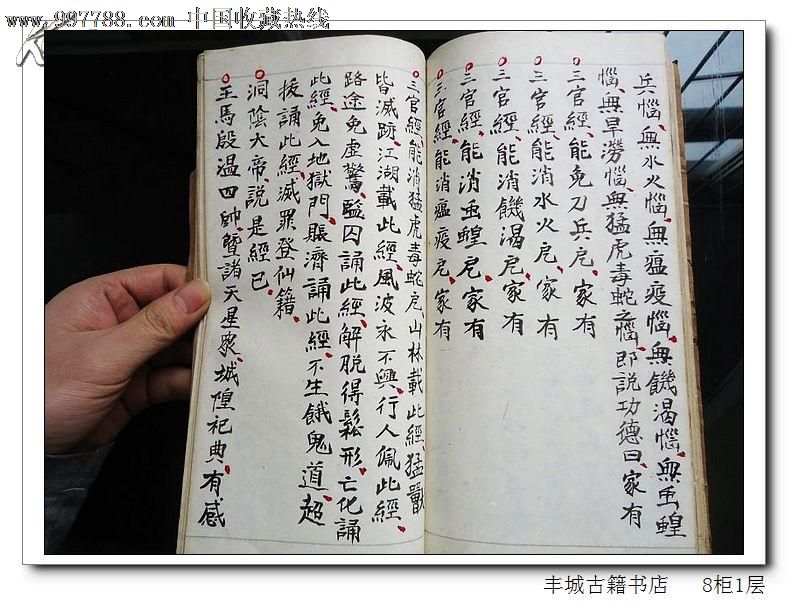 www.997788.com 中国收藏热线
兵惱無水火惱無瘟疫惱無饑渴惱無虫蝗
惱無旱澇惱無猛虎毒蛇之惱即說功德曰家有
三官經能免刀兵厄家有
三官經能消水火厄家有
三官經能消饑渴厄家有
三官經能消虫蝗厄家有
三官經能消瘟疫厄家有
三官經能消猛虎毒蛇厄山林載此經猛獸
皆滅跡江湖載此經風波永不興行人佩此經
路途免虛驚監囚誦此經解脫得鬆形亡化誦
此經免入地獄門賑濟誦此經不生餓鬼道超
拔誦此經滅罪登仙籍
洞陰大帝說是經已
王馬殷温四帥暨諸天星眾城隍祀典有感
丰城古籍书店 8柜1层